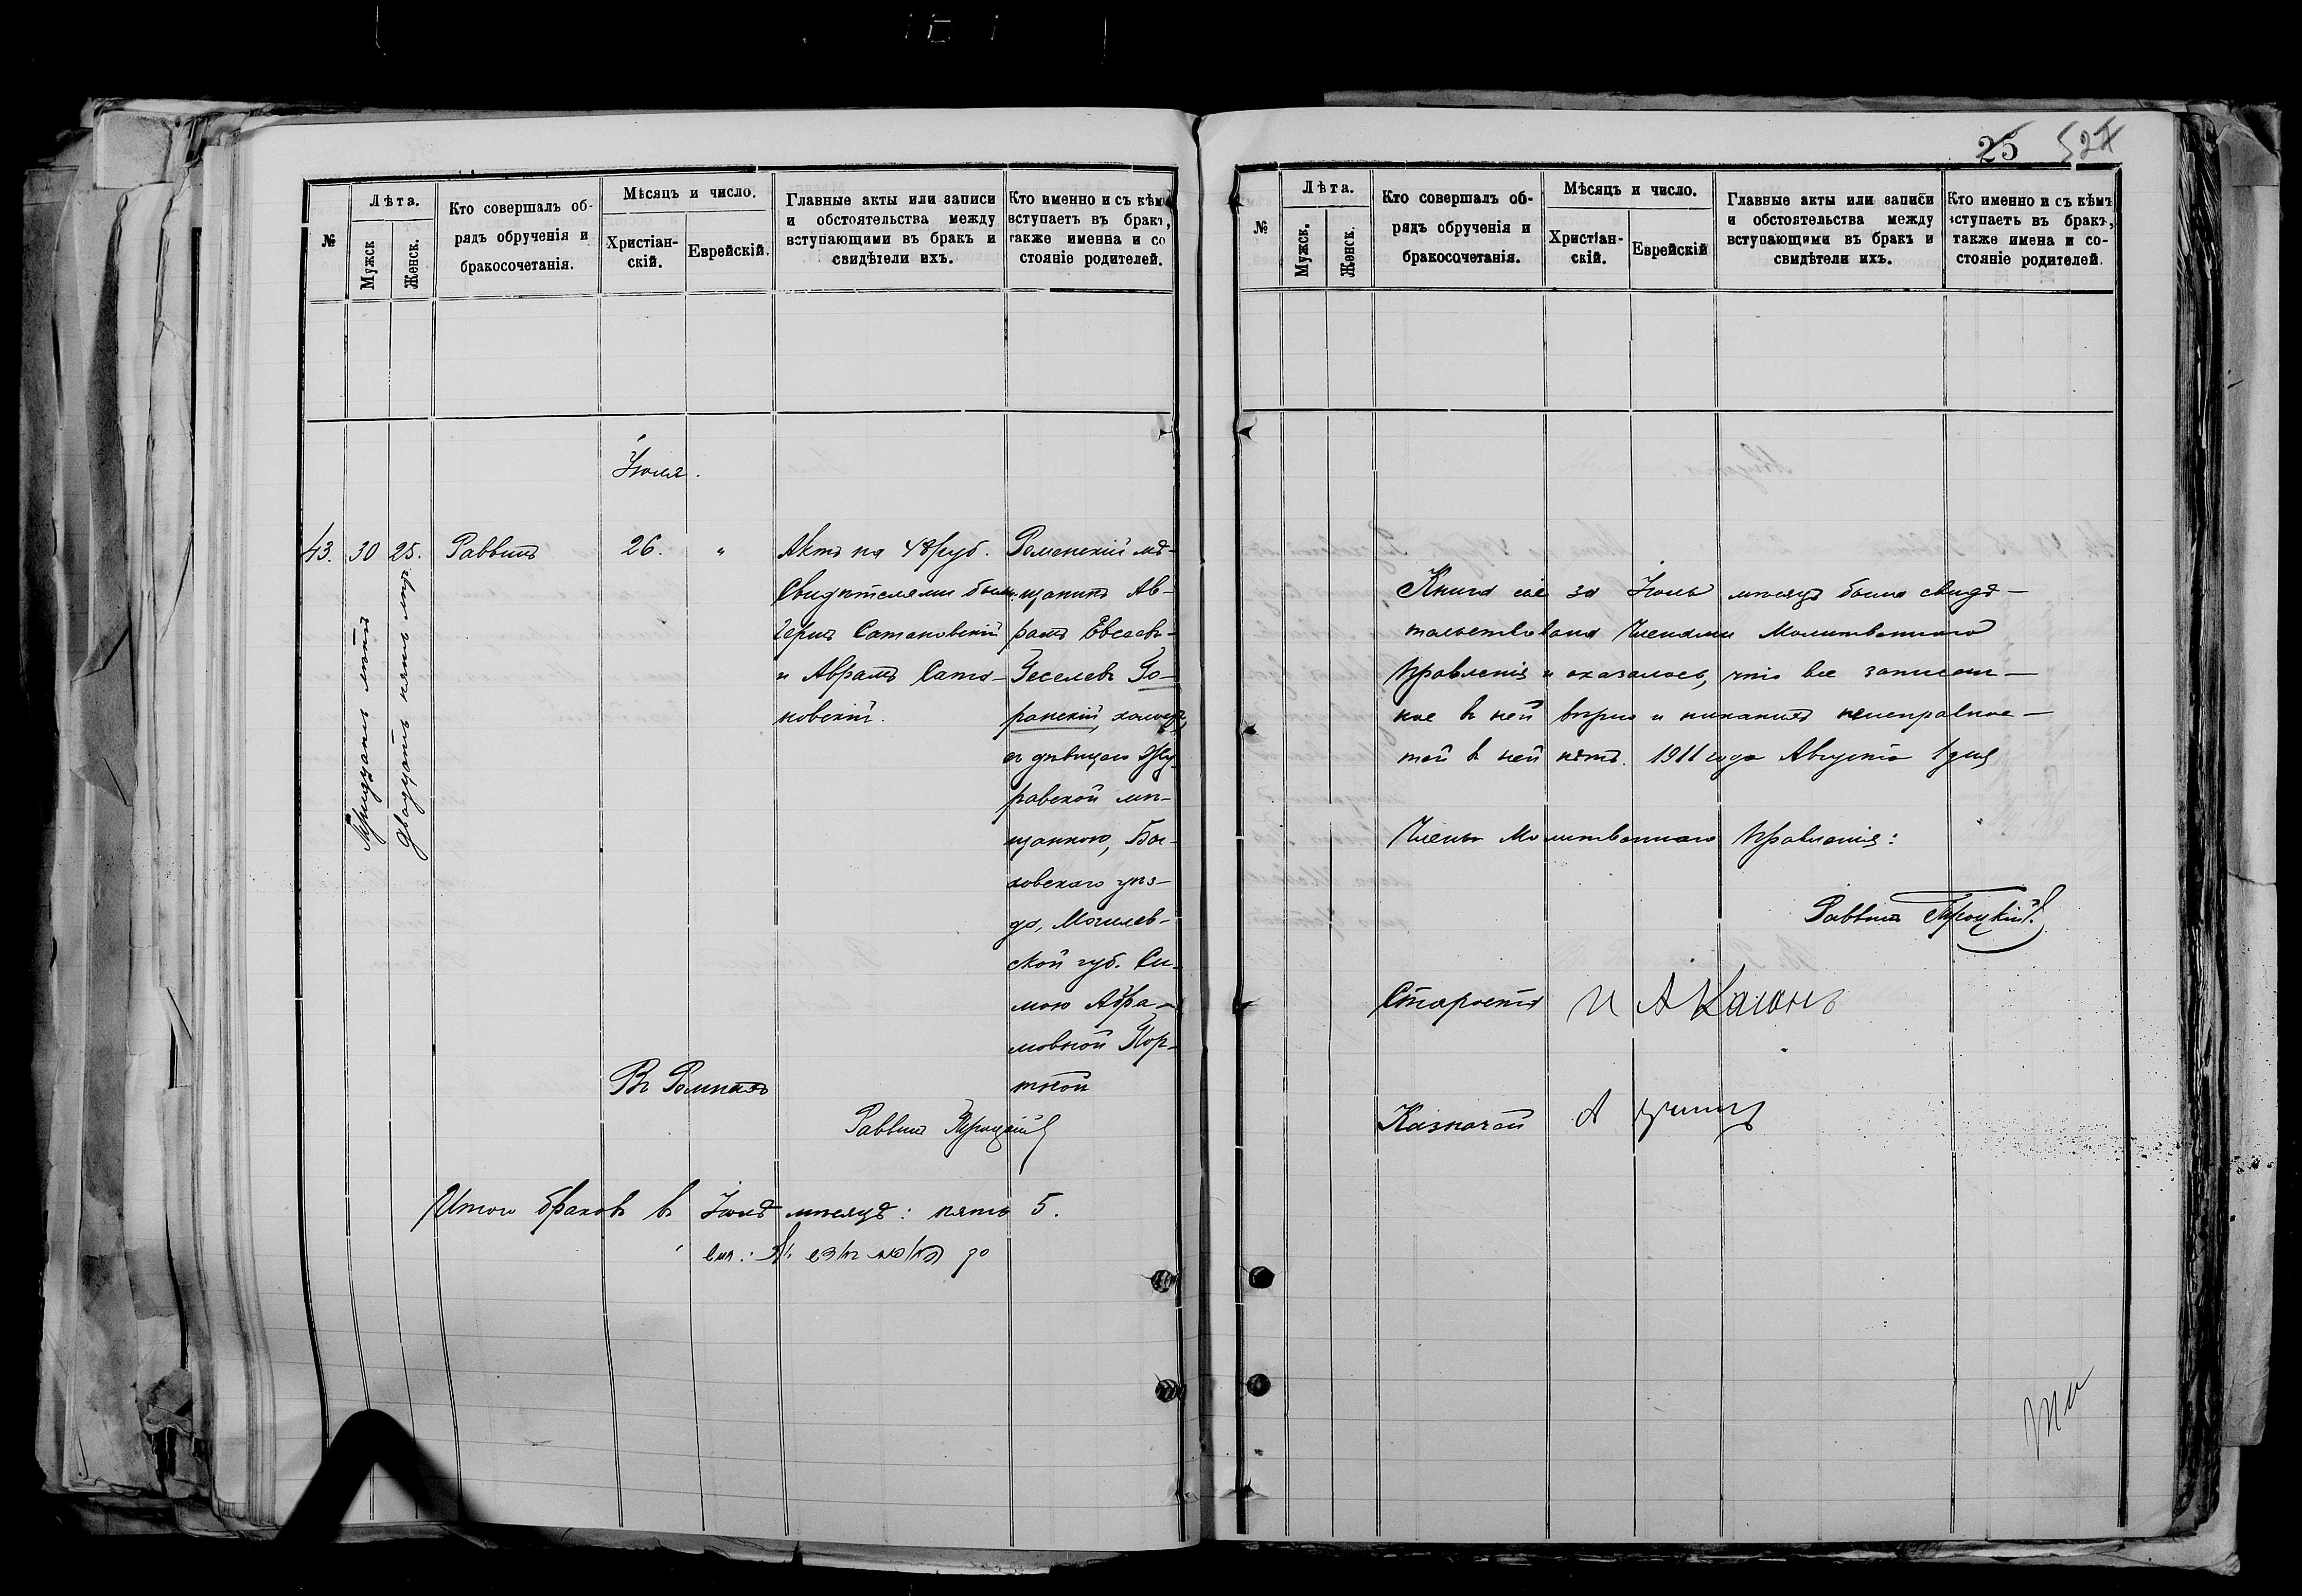 25 527
№
Лѣта.
Мужск
Женск.
Кто совершалъ об-
рядъ обрученія и
бракосочетанія.
Мѣсяцъ и число.
Христіан-
скій.
Еврейскій.
Главные акты или записи
и обстоятельства между
вступающими въ бракъ и
свидѣтели ихъ.
Кто именно и съ кѣмъ
вступаетъ въ бракъ,
также именна и со
стояніе родителей.
Іюля.
43. 30 25. Раввинъ 26. "
Тридцать лѣтъ
двадцать пять лѣтъ
Актъ на 48 руб.
Свидѣтелями были:
Герцъ Сатановскій
и Аврамъ Сата-
новскій.
Роменскій мѣ-
щанинъ Ав-
рамъ Евсеевъ-
Геселевъ Го-
ранскій, холостъ,
съ дѣвицею Жу-
равской мѣ-
щанкою, Бы-
ховскаго уѣз-
да, Могилев-
ской губ. Си-
мою Абра-
мовной Пор-
тной
Въ Ромнахъ
Раввинъ Троцкій
Итого браковъ въ Іюлѣ мѣсяцѣ: пять 5.
№
Лѣта.
Мужск.
Женск.
Кто совершалъ об-
рядъ обрученія и
бракосочетанія.
Мѣсяцъ и число.
Христіан-
скій.
Еврейскій
Главные акты или записи
и обстоятельства между
вступающими въ бракъ и
свидѣтели ихъ.
Кто именно и съ кѣмъ
вступаетъ въ бракъ,
также имена и со-
стояніе родителей.
Книга сія за Іюль мѣсяцъ была свидѣ-
тельствована Членами Молитвеннаго
Правленія и оказалось, что все записан-
ное въ ней вѣрно и никакихъ неисправнос-
тей въ ней нѣтъ. 1911 года Августа 1 дня
Члены Молитвеннаго Правленія:
Раввинъ Троцкій
Староста И А Каганъ
Казначей А